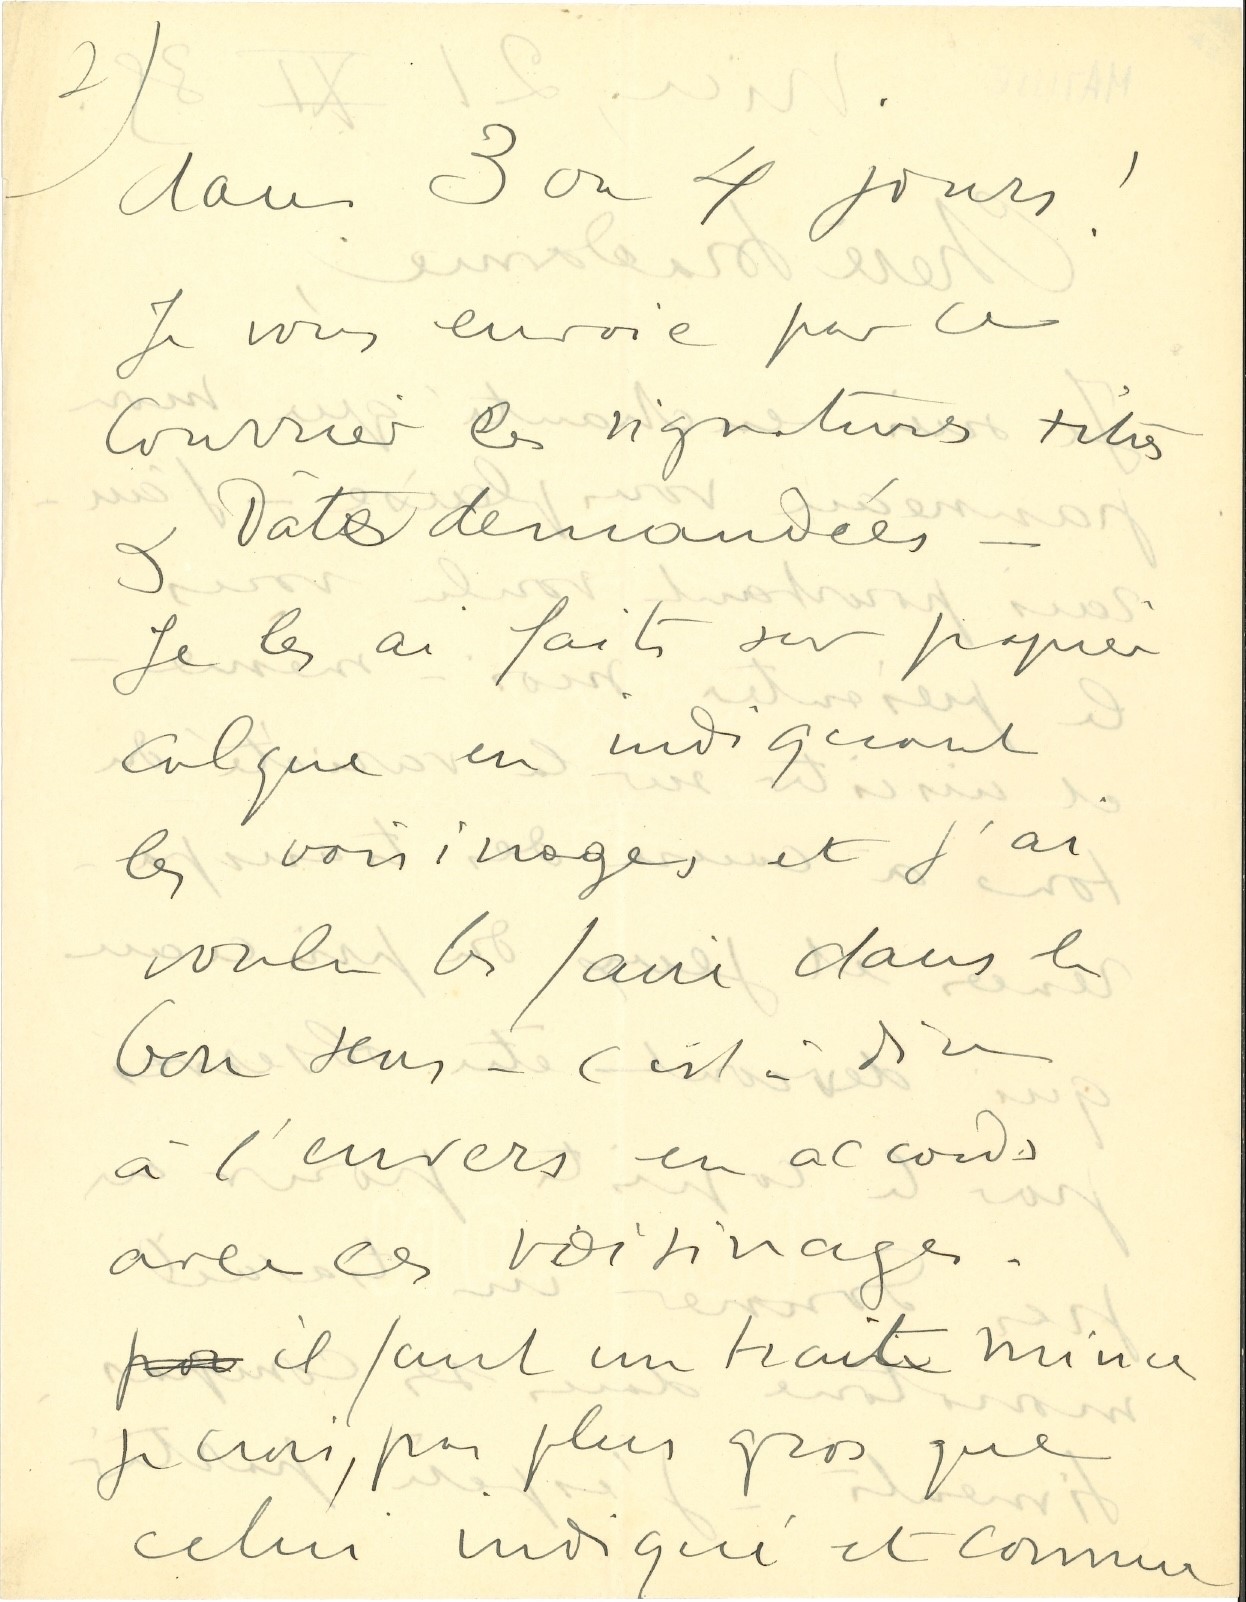 2)
dans 3 ou 4 jours !
Je vous envoie par ce
Courrier les signatures titres
& Dates demandées –
Je les ai faits sur papier
calque en indiquant
les voisinages et j'ai
voulu les faire dans le
bon sens – c'est à dire
à l'envers en accords
avec ces voisinages.
pas il faut un traite mince
je crois, pas plus gros que
celui indiqué et comme